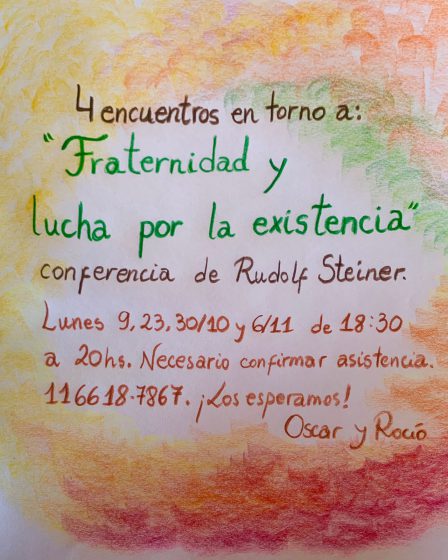 4 encuentros en torno a:
"Fraternidad y
lucha por la existencia"
conferencia de Rudolf Steiner.
Lunes 9, 23, 30/10 y 6/11 de 18:30
a 20hs. Necesario confirmar asistencia.
116618-7867. ¡Los esperamos!
Oscar y Rocío